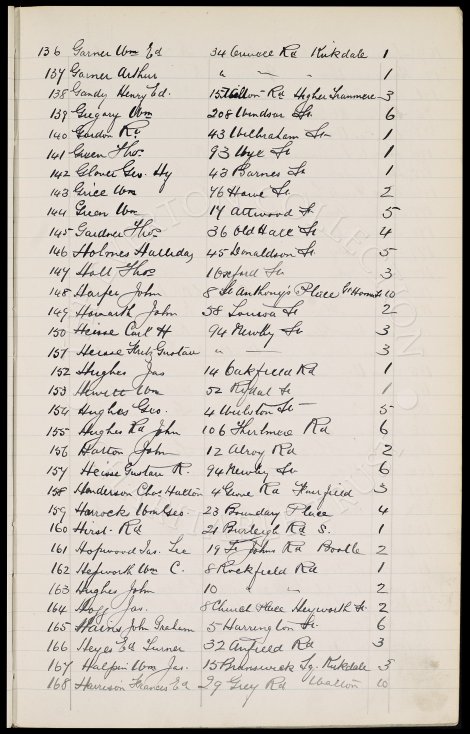 136 Garner Wm Ed 34 Rd Kirkdale 1
137 Garner Arthur " — " 1
138 Gandy Henry Ed. 15 Rd Higher Tranmere 3
139 Gregory Wm 208 Windsor St 6
140 Gordon Rt 43 Wilbraham St 1
141 Green Thos 93 Wye St 1
142 Glover Geo. Hy 43 Barnes St 1
143 Grice Wm 76 Howe St 2
144 Green Wm 17 Attwood St 5
145 Gardner Thos 36 Old Hall St 4
146 Holmes Halliday 45 Donaldson St 5
147 Hall Thos 1 Oxford St 3
148 Harper John 8 St Anthony's Place 10
149 Howarth John 58 Louisa St 2
150 Heisse Carl H 94 Newby St 3
151 Heisse Fritz Gustav " — 3
152 Hughes Jas 14 Oakfield Rd 1
153 Hewitt Wm 52 Rydal St 1
154 Hughes Geo. 4 St 5
155 Hughes Rd John 106 Thirlmere Rd 6
156 Harton John 12 Alroy Rd 2
157 Heisse Gustav R. 94 Newby St 6
158 Henderson Chas 4 Rd Fairfield 3
159 Wm Geo 23 Boundary Place 4
160 Hirst Rd 21 Burleigh Rd S. 1
161 Hopwood Jas. Lee 19 St Johns Rd Bootle 2
162 Hepworth Wm C. 8 Rockfield Rd 1
163 Hughes John 10 " " 2
164 Jas. 8 Church Place Heyworth St 2
165 Hains John Graham 5 Harrington St 6
166 Heyes Ed Turner 32 Anfield Rd 3
167 Halpin Wm Jas. 15 Brunswick Kirkdale 3
168 Harrison Frances Ed 29 Grey Rd Walton 10